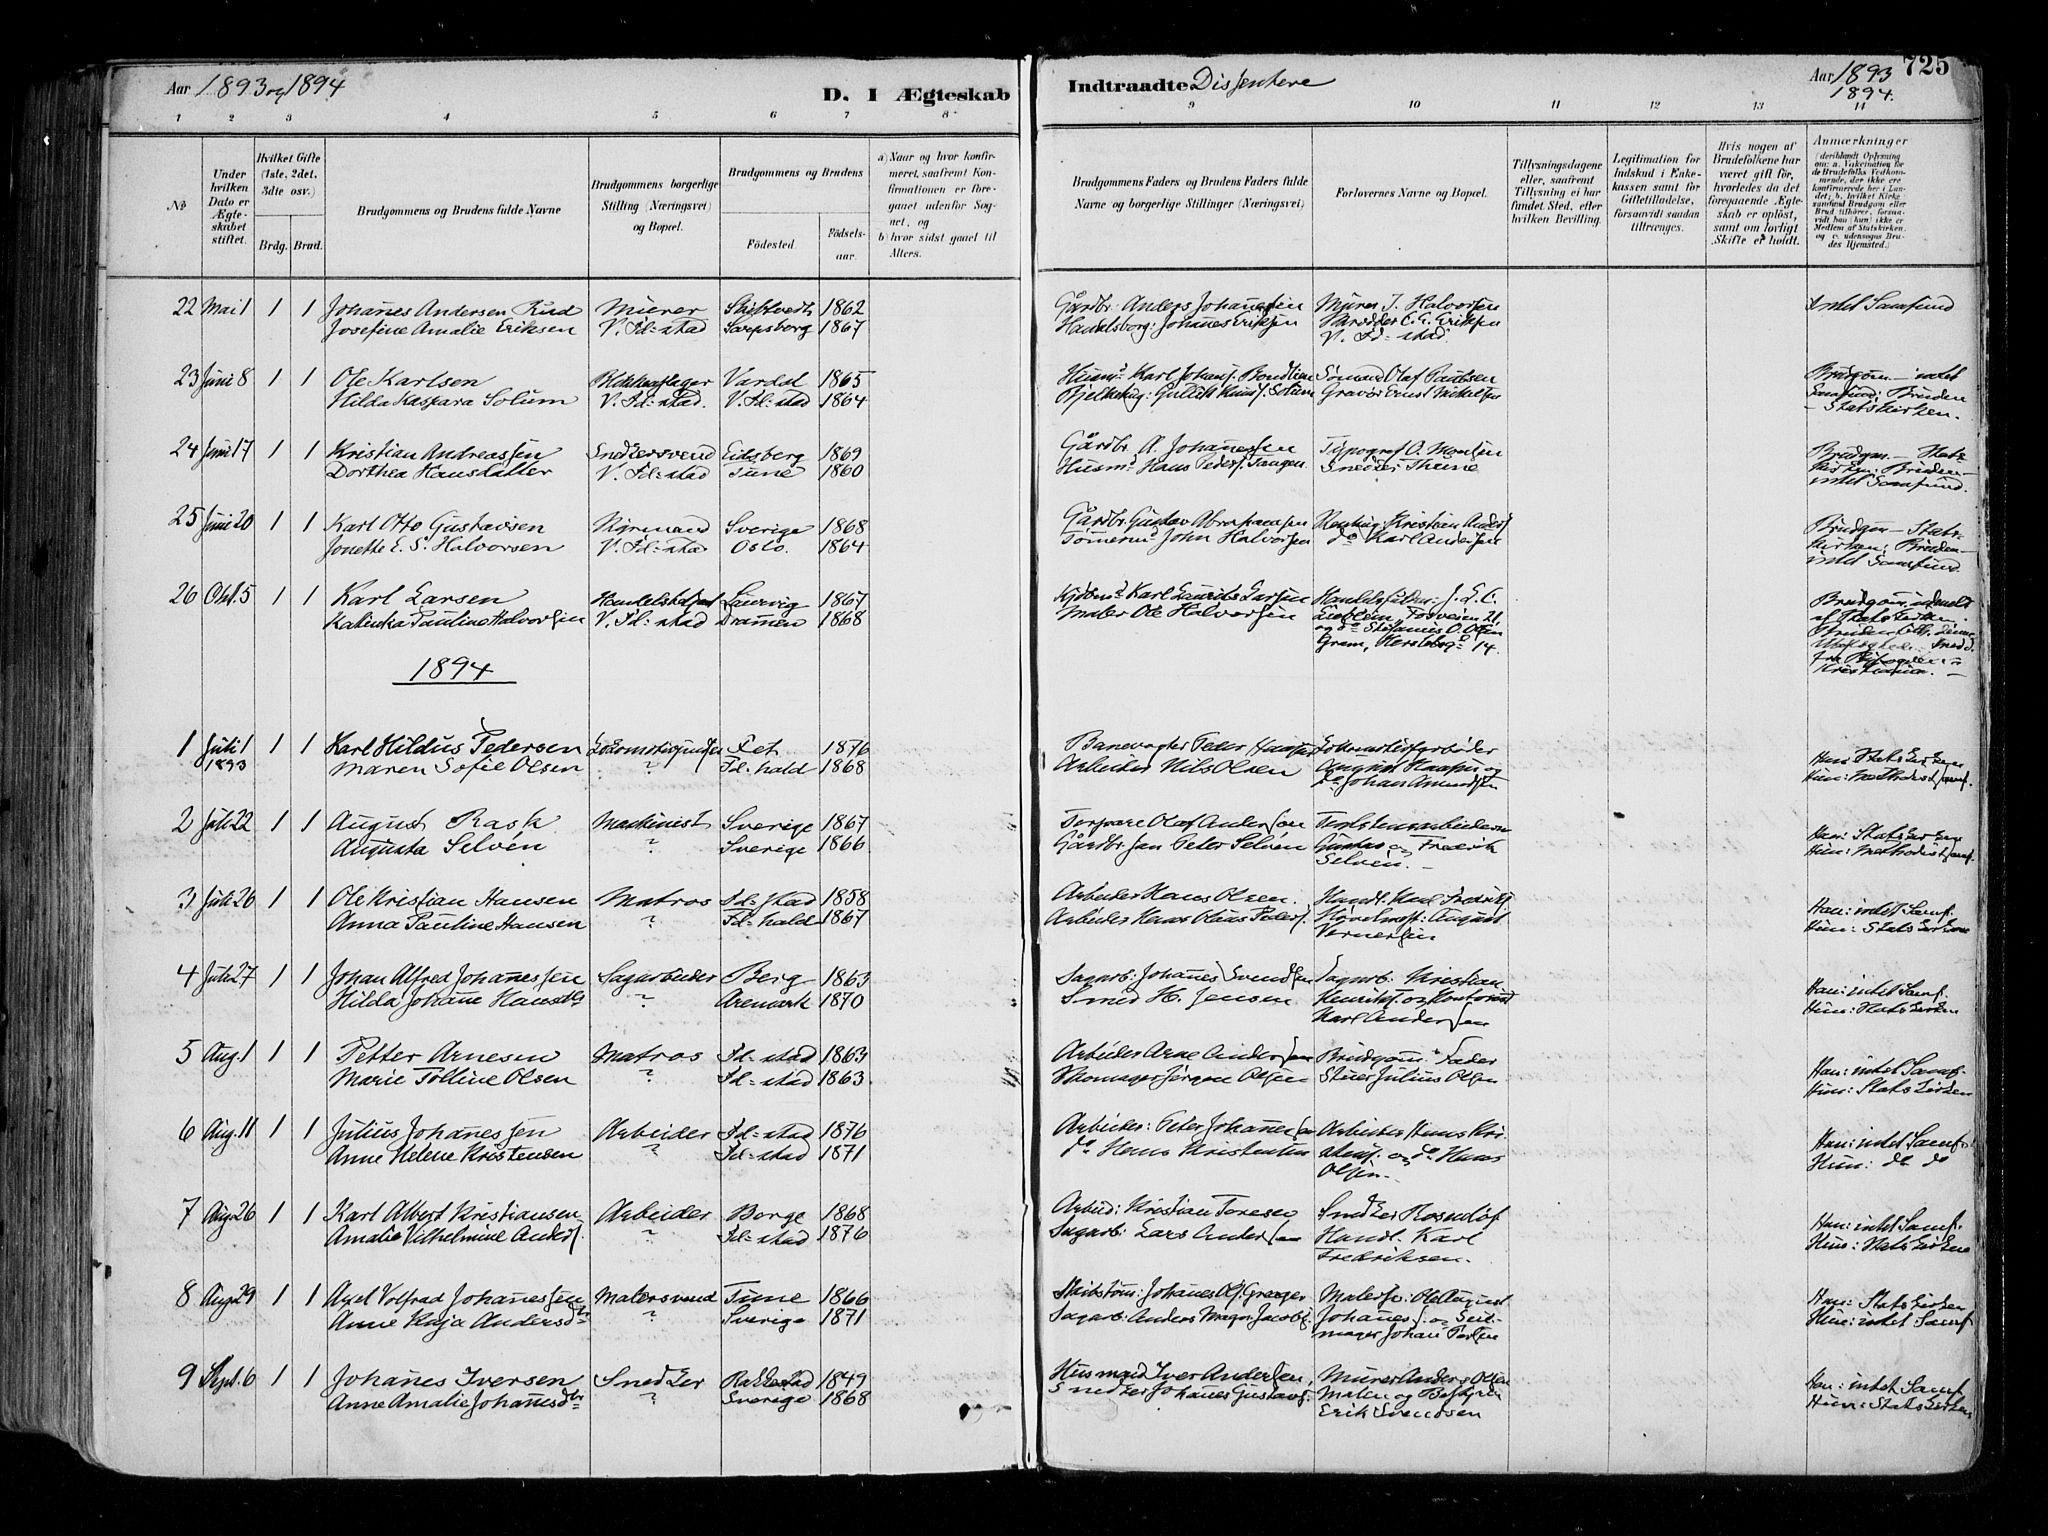 Aar 1893 og 1894
D. I Ægteskab
Indtraadte Dissentere
Aar 1893 1894. 725
1 2 3 4 5 6 7 8 9 10 11 12 13 14
№
Under hvilken Dato er Ægteskabet stiftet.
Hvilket Gifte (1ste, 2det, 3dte osv.)
Brdg. Brud.
Brudgommens og Brudens fulde Navne
Brudgommens borgerlige Stilling (Næringsvei) og Bopæl.
Brudgommens og Brudens
Fødested. Fødselsaar.
a) Naar og hvor konfirmeret, saafremt Konfirmationen er foregaaet udenfor Sognet, og
b) hvor sidst gaaet til Alters.
Brudgommens Faders og Brudens Faders fulde Navne og borgerlige Stillinger (Næringsvei)
Forlovernes Navne og Bopæl.
Tillysningsdagene eller, saafremt Tillysning ei har fundet Sted, efter hvilken Bevilling.
Legitimation for Indskud i Enkekassen samt for Giftetilladelse, forsaavidt saadan tiltrænges.
Hvis nogen af Brudefolkene har været gift før, hvorledes da det foregaaende Ægteskab er opløst, samt om lovligt Skifte er holdt.
Anmærkninger (deriblandt Oplysning om: a. Vakcination for de Brudefolks Vedkommende, der ikke ere konfirmerede her i Landet; b. hvilket Kirkesamfund Brudgom eller Brud tilhører, forsavidt han (hun) ikke er Medlem af Statskirken og c. udensogns Brudes Hjemsted.)
22 Mai 1 1 1 Johanes Andersen Rud Murer Skiptvedt 1862 Gårdbr: Anders Johanessen Murer J. Halvorsen intet Samfund
Josefine Amalie Eriksen V. Fd=stad Sarpsborg 1867 Handelsborg: Johanes Eriksen Skrædder C. E. Eriksen
V. Fd=stad.
23 Juni 8 1 1 Ole Karlsen Blikkenslager Vardal 1865 Husmd Karl Johans. Bondlien Sømand Olaf Paulsen Brudgom - intet
Hilda Kaspara Solum V. Fd=stad. V. Fd=stad 1864 Gravør Ernst Mikkelsen Samfund; Bruden
- Statskirken.
24 Juni 17 1 1 Kristian Andreassen Snedkersvend Eidsberg 1869 Gårdbr. A. Johanessen Typograf O. Monsen Brudgom - Stats
Dorthea Hansdatter V. Fd=stad Tune 1860 Husmd Hans Peders. Tangen Snedker Thune kirken; Bruden -
intet Samfund.
25 Juni 20 1 1 Karl Otto Gustavsen Styrmand Sverige 1868 Gårdbr. Gustav Abrahamsen Kristian Anders. Brudgom - Stats-
Jonette E. S. Halvorsen V. Fd=stad Oslo. 1864 Tømmermd John Halvorsen do Karl Andersen kirken; Bruden -
intet Samfund.
26 Okt. 5 1 1 Karl Larsen Laurvig 1867 Karl Laurits Larsen J. E. C. Brudgom: udmeldt
Kalinka Pauline Halvorsen V. Fd=stad Dramen 1868 Maler Ole Halvorsen Fosveien 21 af Statskirken.
og do Stefanus O. Olsen
Gram, 14.
Kristiania. -
1894
1 Juli 1 1 1 Karl Hildus Pedersen Fet 1876 Banevogter Peder Hansen Lokomotivfyrbøder Han: Statskirken
1893 Maren Sofie Olsen " Fd=hald 1868 Arbeider Nils Olsen August og Hun: Methodistsamf.
do Johan Amundsen
2 Juli 22 1 1 August Rask Machinist Sverige 1867 Torpare Olaf Anderson Han: Statskirken
Augusta Selvén " Sverige 1866 Gårdbr. Jan Peter Selvén Gustav og Fredrik Hun: Methodistsamf.
Selvén. -
3 Juli 26 1 1 Ole Kristian Hansen Matros Fd=stad 1858 Arbeider Hans Olsen. Handl. Karl Fredriks. Han: intet Samf.
Anna Pauline Hansen " Fd=hald 1867 Arbeider Hans Olaus Peders. Høvelmst: August Hun: Statskirken
Vernersen
4 Juli 27 1 1 Johan Alfred Johanessen Sagarbeider Berg 1863 Sagarb: Johanes Svendsen Sagarb: Kristian Han: intet Samf.
Hilda Johanne Hansdtr " Aremark 1870 Smed H. Jensen Henriks. og Kontorist Hun: Statskirken
Karl Andersen
5 Aug. 1 1 1 Petter Arnesen Matros Fd=stad 1863 Arbeider Arne Andersen Brudgoms Fader Han: intet Samf.
Marie Polline Olsen " Fd=stad 1863 Skomager Jørgen Olsen Stuer Julius Olsen Hun: Statskirken
6 Aug. 11 1 1 Julius Johanessen Arbeider Fd=stad 1876 Arbeider: Peter Johannesen Arbeider Hans Kri- Han: intet Samf.
Anne Helene Kristensen " Fd=stad 1871 do Hans Kristensen stens. og do Hans Hun: do do
Olsen.
7 Aug. 26 1 1 Karl Albert Kristiansen Arbeider Borge 1868 Arbeid: Kristian Toresen Snedker Rosnløf Han: intet Samf.
Amalie Vilhelmine Anders. " Fd=stad 1876 Sagarb: Lars Andersen Handl. Karl Hun: Statskirken
Fredriksen.
8 Aug. 29 1 1 Axel Volfrad Johanessen Malersvend Tune 1866 Skibstøm: Johanes Ols. Greager Malersv: Ole August Han: Statskirken
Anne Kaja Andersdtr " Sverige 1871 Sagarb: Anders Magn. Jacobs. Johanes. og Seil- Hun: intet Samf.
mager Johan
9 Sept. 6 1 1 Johanes Iversen Snedker Rakkestad 1849 Husmand Iver Andersen, Murer Anders Olsen Han: intet Samf.
Anne Amalie Johanesdtr " Sverige 1868 Snedker Johanes Gustavs. Malen og Bestyrer Hun: Statskirken
Erik Svendsen